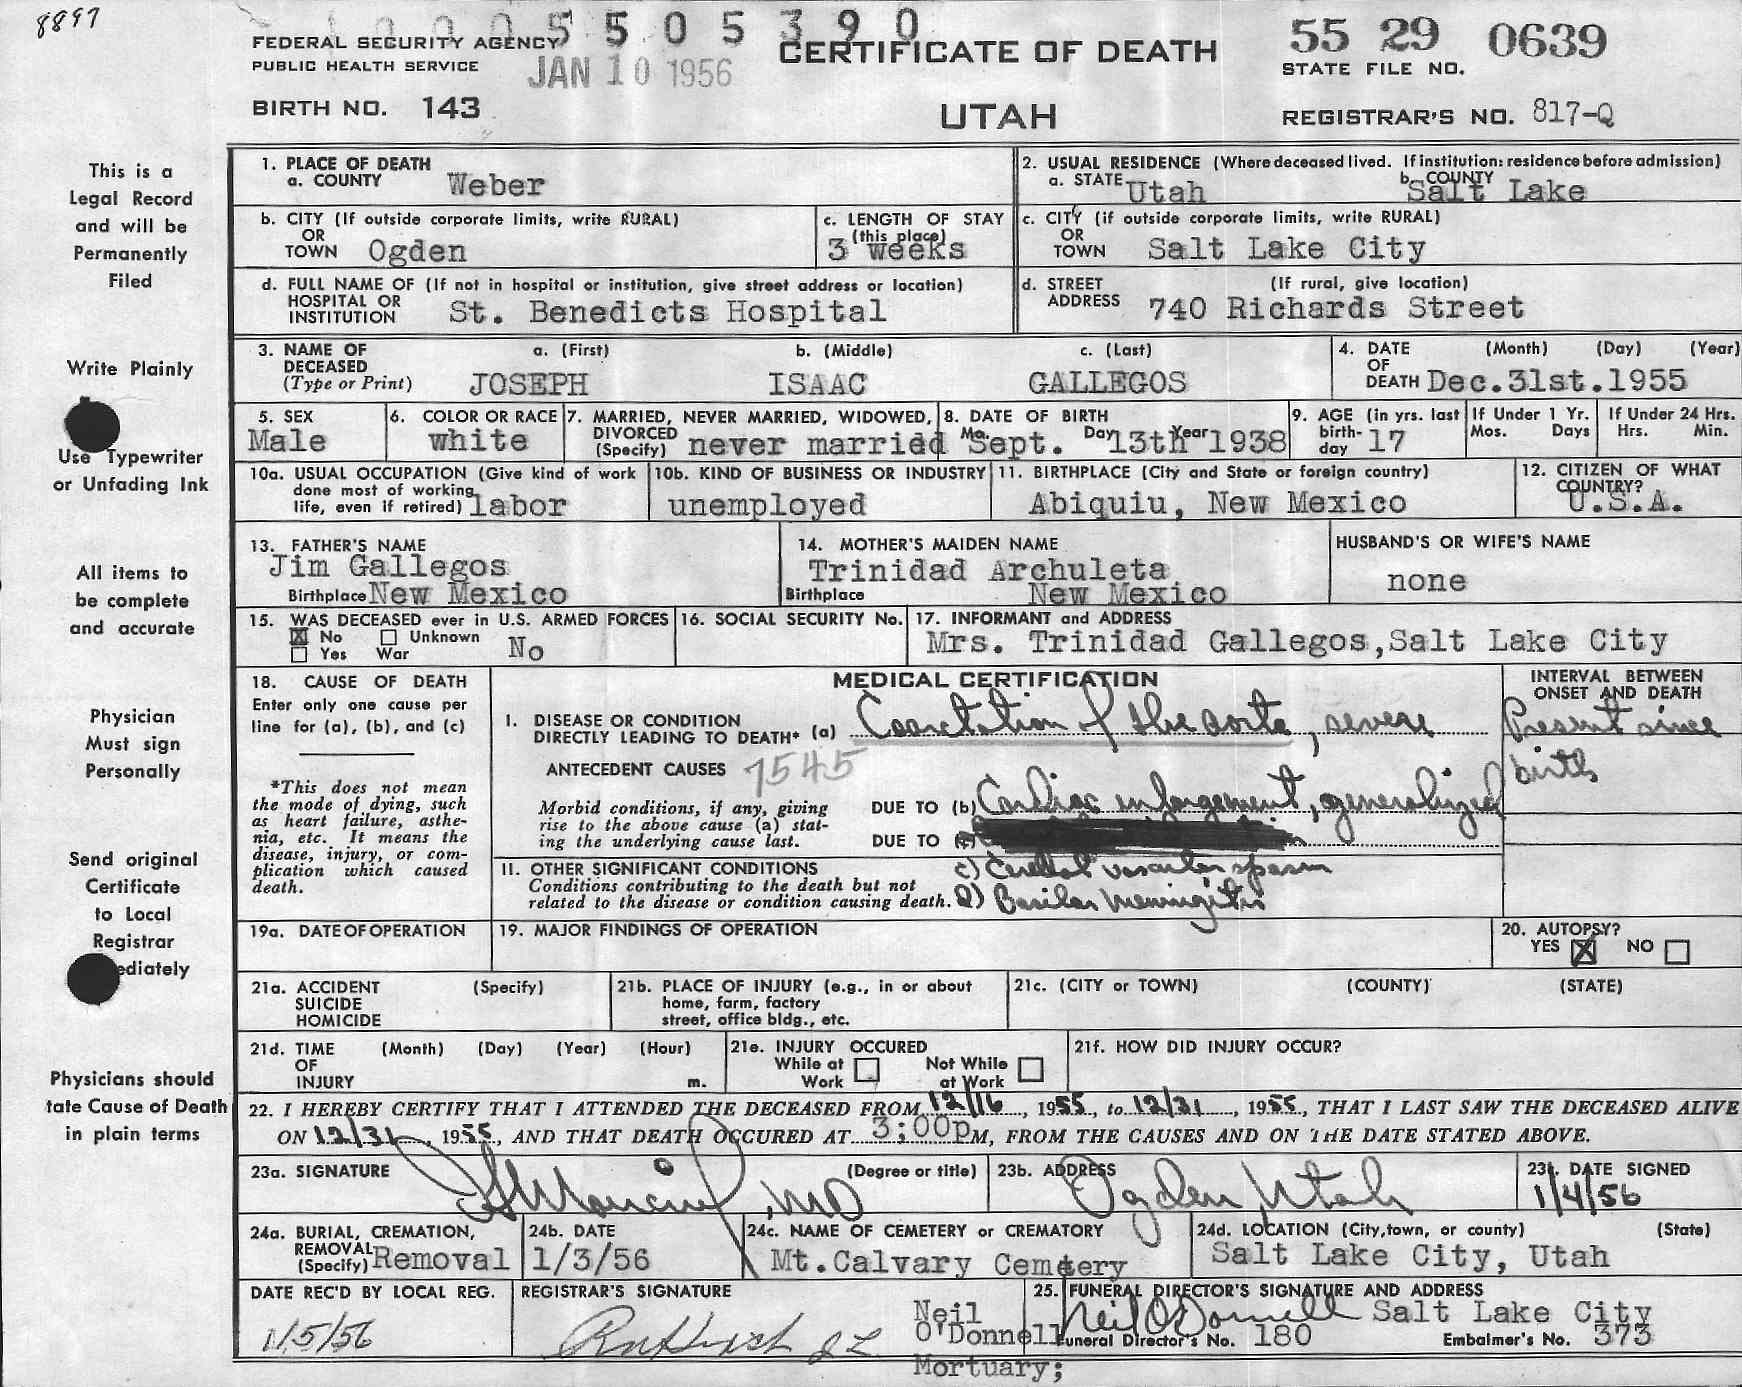 8897
0005505390
FEDERAL SECURITY AGENCY
PUBLIC HEALTH SERVICE
JAN 10 1956
CERTIFICATE OF DEATH
55 29 0639
STATE FILE NO.
BIRTH NO. 143
UTAH
REGISTRAR'S NO. 817-Q
This is a
Legal Record
and will be
Permanently
Filed
Write Plainly
Use Typewriter
or Unfading Ink
All items to
be complete
and accurate
Physician
Must sign
Personally
Send original
Certificate
to Local
Registrar
ediately
Physicians should
tate Cause of Death
in plain terms
1. PLACE OF DEATH
a. COUNTY Weber
2. USUAL RESIDENCE (Where deceased lived. If institution: residence before admission)
a. STATE Utah b. COUNTY Salt Lake
b. CITY (If outside corporate limits, write RURAL)
OR
TOWN Ogden
c. LENGTH OF STAY
(this place)
3 weeks
c. CITY (if outside corporate limits, write RURAL)
OR
TOWN Salt Lake City
d. FULL NAME OF (If not in hospital or institution, give street address or location)
HOSPITAL OR
INSTITUTION St. Benedicts Hospital
d. STREET (If rural, give location)
ADDRESS 740 Richards Street
3. NAME OF a. (First) b. (Middle) c. (Last)
DECEASED
(Type or Print) JOSEPH ISAAC GALLEGOS
4. DATE (Month) (Day) (Year)
OF
DEATH Dec.31st.1955
5. SEX
Male
6. COLOR OR RACE
white
7. MARRIED, NEVER MARRIED, WIDOWED,
DIVORCED
(Specify) never married
8. DATE OF BIRTH
Mo. Sept. Day 13th Year 1938
9. AGE (in yrs. last
birth-
day 17
If Under 1 Yr.
Mos. Days
If Under 24 Hrs.
Hrs. Min.
10a. USUAL OCCUPATION (Give kind of work
done most of working
life, even if retired) labor
10b. KIND OF BUSINESS OR INDUSTRY
unemployed
11. BIRTHPLACE (City and State or foreign country)
Abiquiu, New Mexico
12. CITIZEN OF WHAT
COUNTRY?
U.S.A.
13. FATHER'S NAME
Jim Gallegos
Birthplace New Mexico
14. MOTHER'S MAIDEN NAME
Trinidad Archuleta
Birthplace New Mexico
HUSBAND'S OR WIFE'S NAME
none
15. WAS DECEASED ever in U.S. ARMED FORCES
No Unknown
Yes War No
16. SOCIAL SECURITY No.
17. INFORMANT and ADDRESS
Mrs. Trinidad Gallegos,Salt Lake City
18. CAUSE OF DEATH
Enter only one cause per
line for (a), (b), and (c)
*This does not mean
the mode of dying, such
as heart failure, asthe-
nia, etc. It means the
disease, injury, or com-
plication which caused
death.
MEDICAL CERTIFICATION
I. DISEASE OR CONDITION
DIRECTLY LEADING TO DEATH* (a) Coarctation of the aorta, severe
ANTECEDENT CAUSES 7545
Morbid conditions, if any, giving
rise to the above cause (a) stat-
ing the underlying cause last.
DUE TO (b) Cardiac enlargement, generalized
DUE TO (c)
II. OTHER SIGNIFICANT CONDITIONS
Conditions contributing to the death but not
related to the disease or condition causing death.
c) Cerebral vascular spasm
d) Basilar Meningitis
INTERVAL BETWEEN
ONSET AND DEATH
Present since
birth
19a. DATE OF OPERATION
19. MAJOR FINDINGS OF OPERATION
20. AUTOPSY?
YES X NO
21a. ACCIDENT (Specify)
SUICIDE
HOMICIDE
21b. PLACE OF INJURY (e.g., in or about
home, farm, factory
street, office bldg., etc.
21c. (CITY or TOWN) (COUNTY) (STATE)
21d. TIME (Month) (Day) (Year) (Hour)
OF
INJURY m.
21e. INJURY OCCURED
While at Not While
Work at Work
21f. HOW DID INJURY OCCUR?
22. I HEREBY CERTIFY THAT I ATTENDED THE DECEASED FROM 12/16, 1955, to 12/31, 1955, THAT I LAST SAW THE DECEASED ALIVE
ON 12/31, 1955, AND THAT DEATH OCCURED AT 3;00pM, FROM THE CAUSES AND ON THE DATE STATED ABOVE.
23a. SIGNATURE (Degree or title)
MD
23b. ADDRESS
Ogden Utah
23c. DATE SIGNED
1/4/56
24a. BURIAL, CREMATION,
REMOVAL
(Specify) Removal
24b. DATE
1/3/56
24c. NAME OF CEMETERY or CREMATORY
Mt.Calvary Cemetery
24d. LOCATION (City,town, or county) (State)
Salt Lake City, Utah
DATE REC'D BY LOCAL REG.
1/5/56
REGISTRAR'S SIGNATURE
Neil
O'Donnell
Mortuary;
25. FUNERAL DIRECTOR'S SIGNATURE AND ADDRESS
Neil O'Donnell Salt Lake City
Funeral Director's No. 180 Embalmer's No. 373